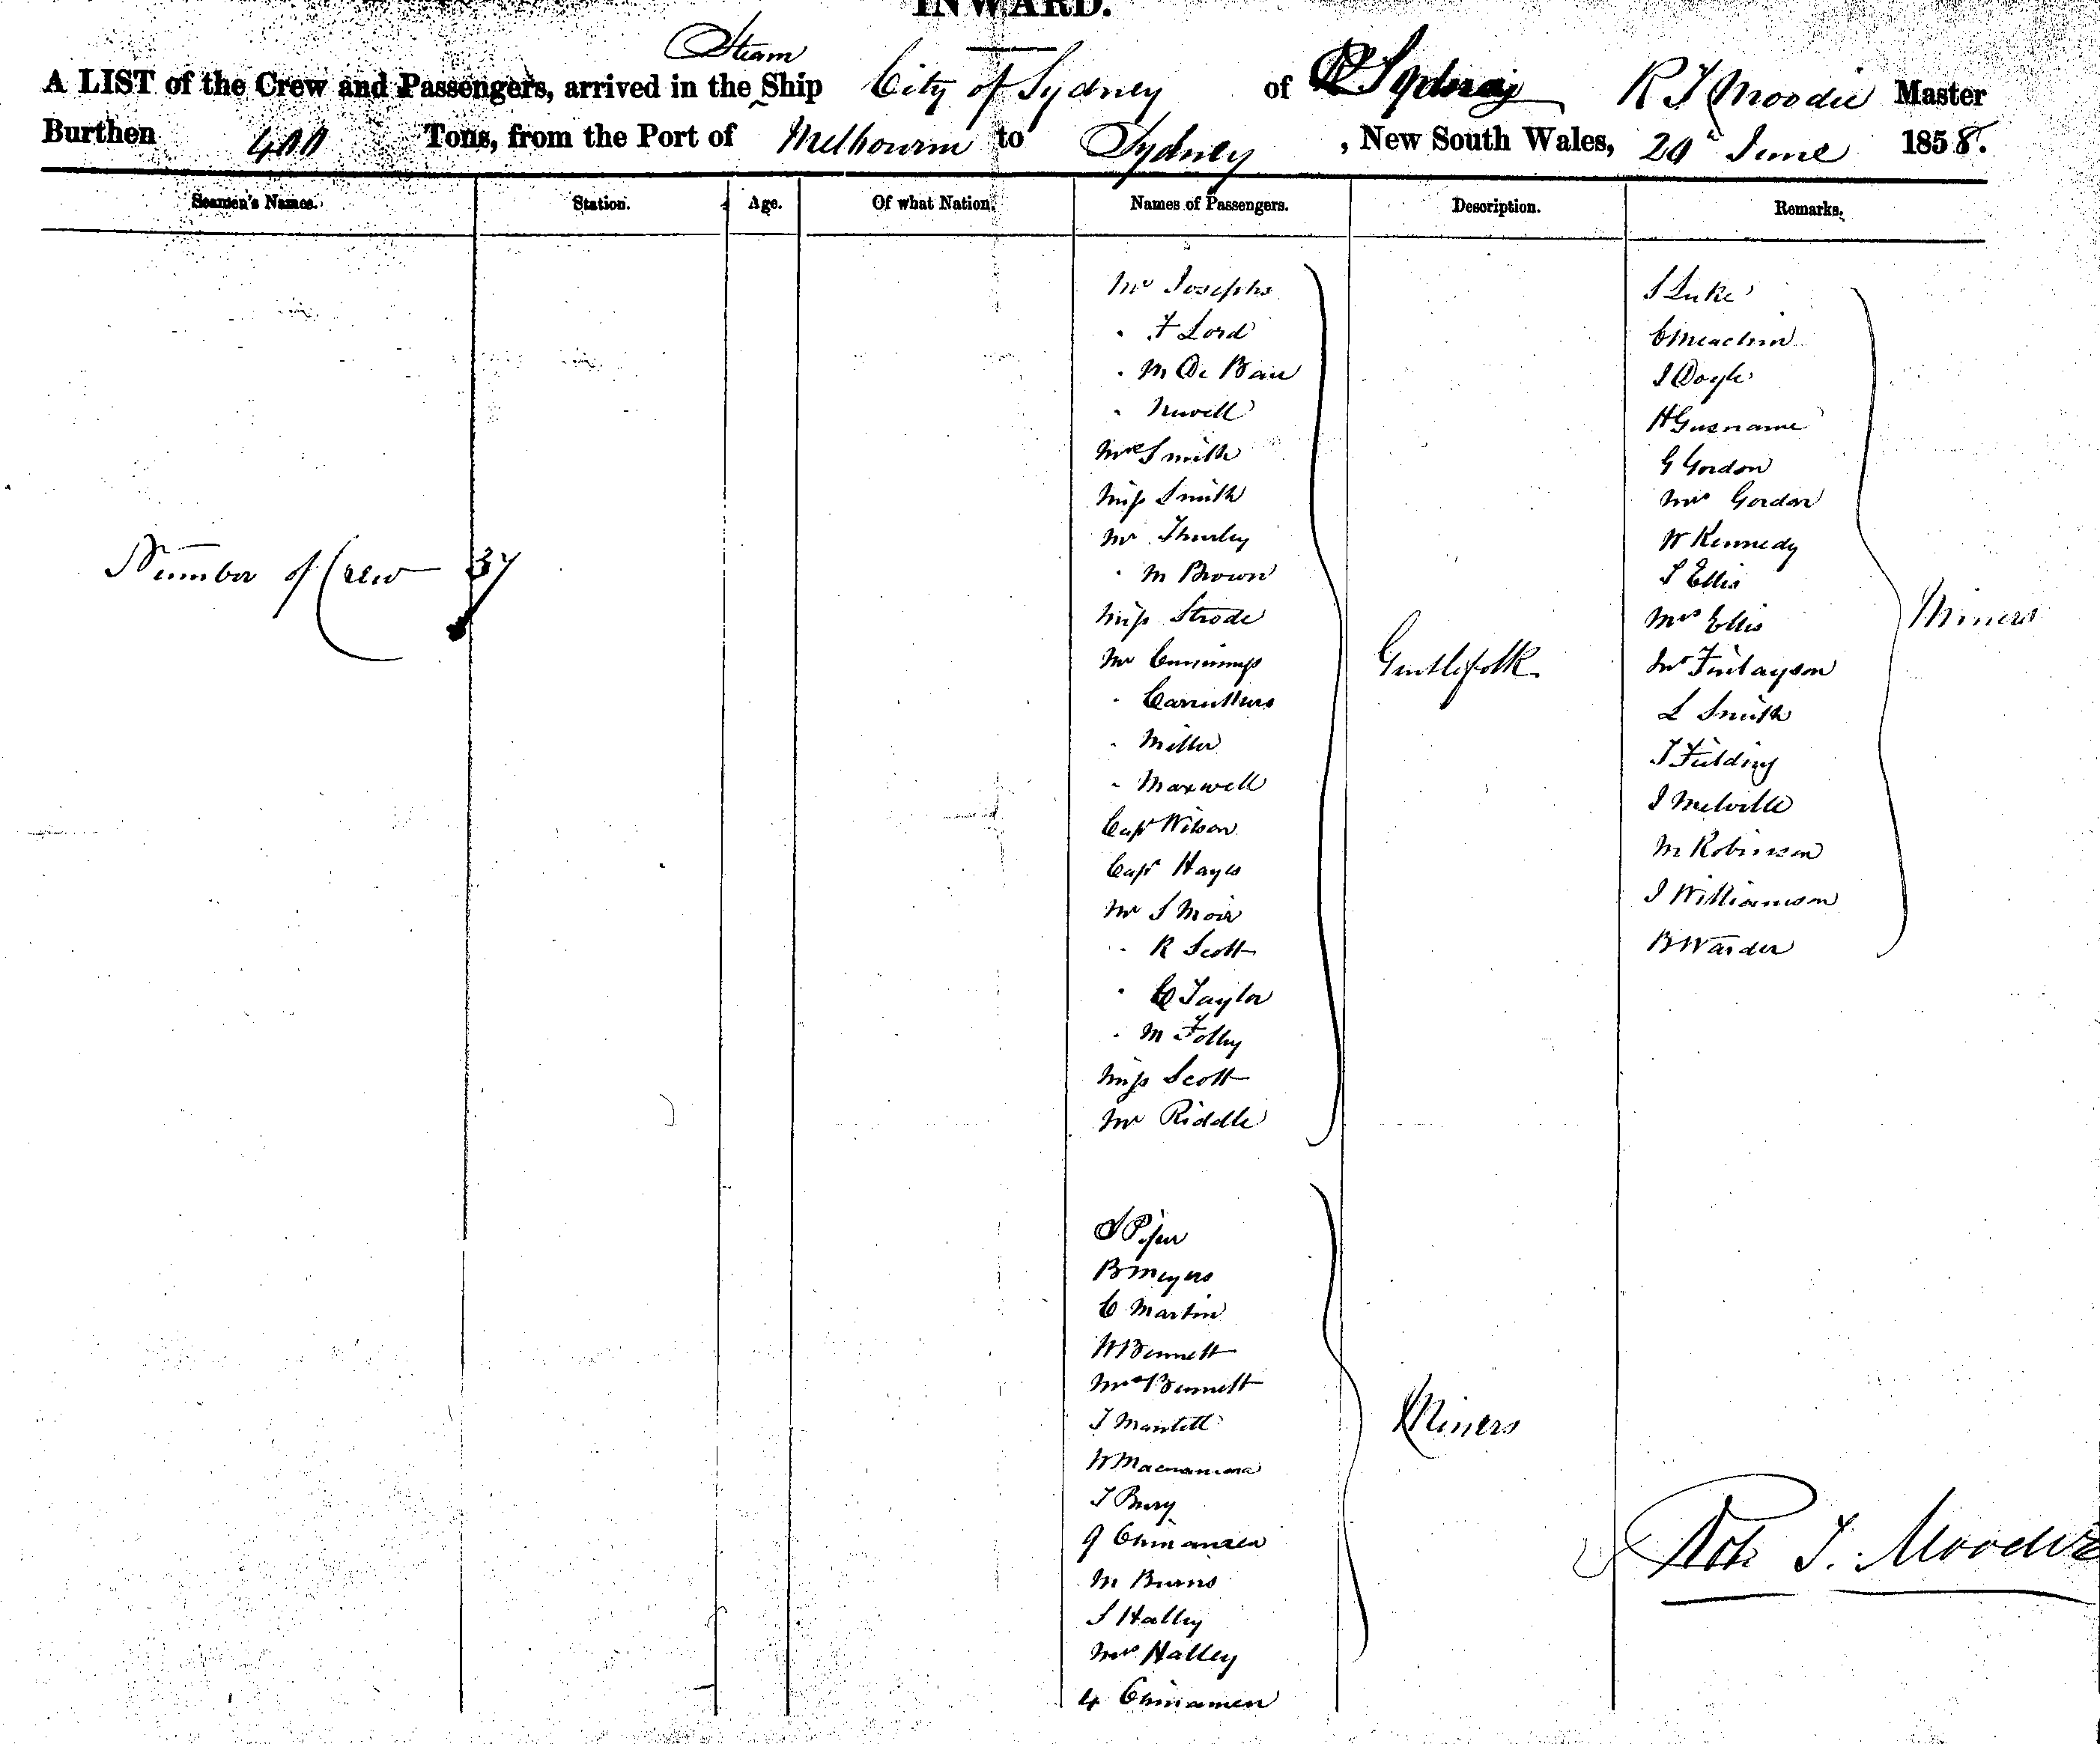 INWARD.
Steam
A LIST of the Crew and Passengers, arrived in the Ship City of Sydney of Sydney R T Moodie Master
Burthen 400 Tons, from the Port of Melbourne to Sydney, New South Wales, 20th June 1858.
Seamen's Names. Station. Age. Of what Nation. Names of Passengers. Description. Remarks.
Mr Josephs
" F Lord
" M De Bau
" Newell
Mrs Smith
Miss Smith
Mr Thurley
" M Brown
Miss Strode
Mr Cummings
" Carruthers
" Miller
" Maxwell
Capt Wilson
Capt Hayes
Mr S Moir
" R Scott
" C Taylor
" M Folley
Miss Scott
Mr Riddle
Gentlefolk
Number of Crew 37
S Piper
B Meyers
C Martin
W Bennett
Mrs Bennett
T Mantell
W Macnamara
T Bury
9 Chinamen
M Burns
S Halley
Mrs Halley
4 Chinamen
Miners
S Luke
C Meachim
J Doyle
H
G Gordon
Mrs Gordon
W Kennedy
S Ellis
Mrs Ellis
Finlayson
L Smith
T Fielding
J Melville
M Robinson
J Williamson
B Warder
Miners
Robt T. Moodie